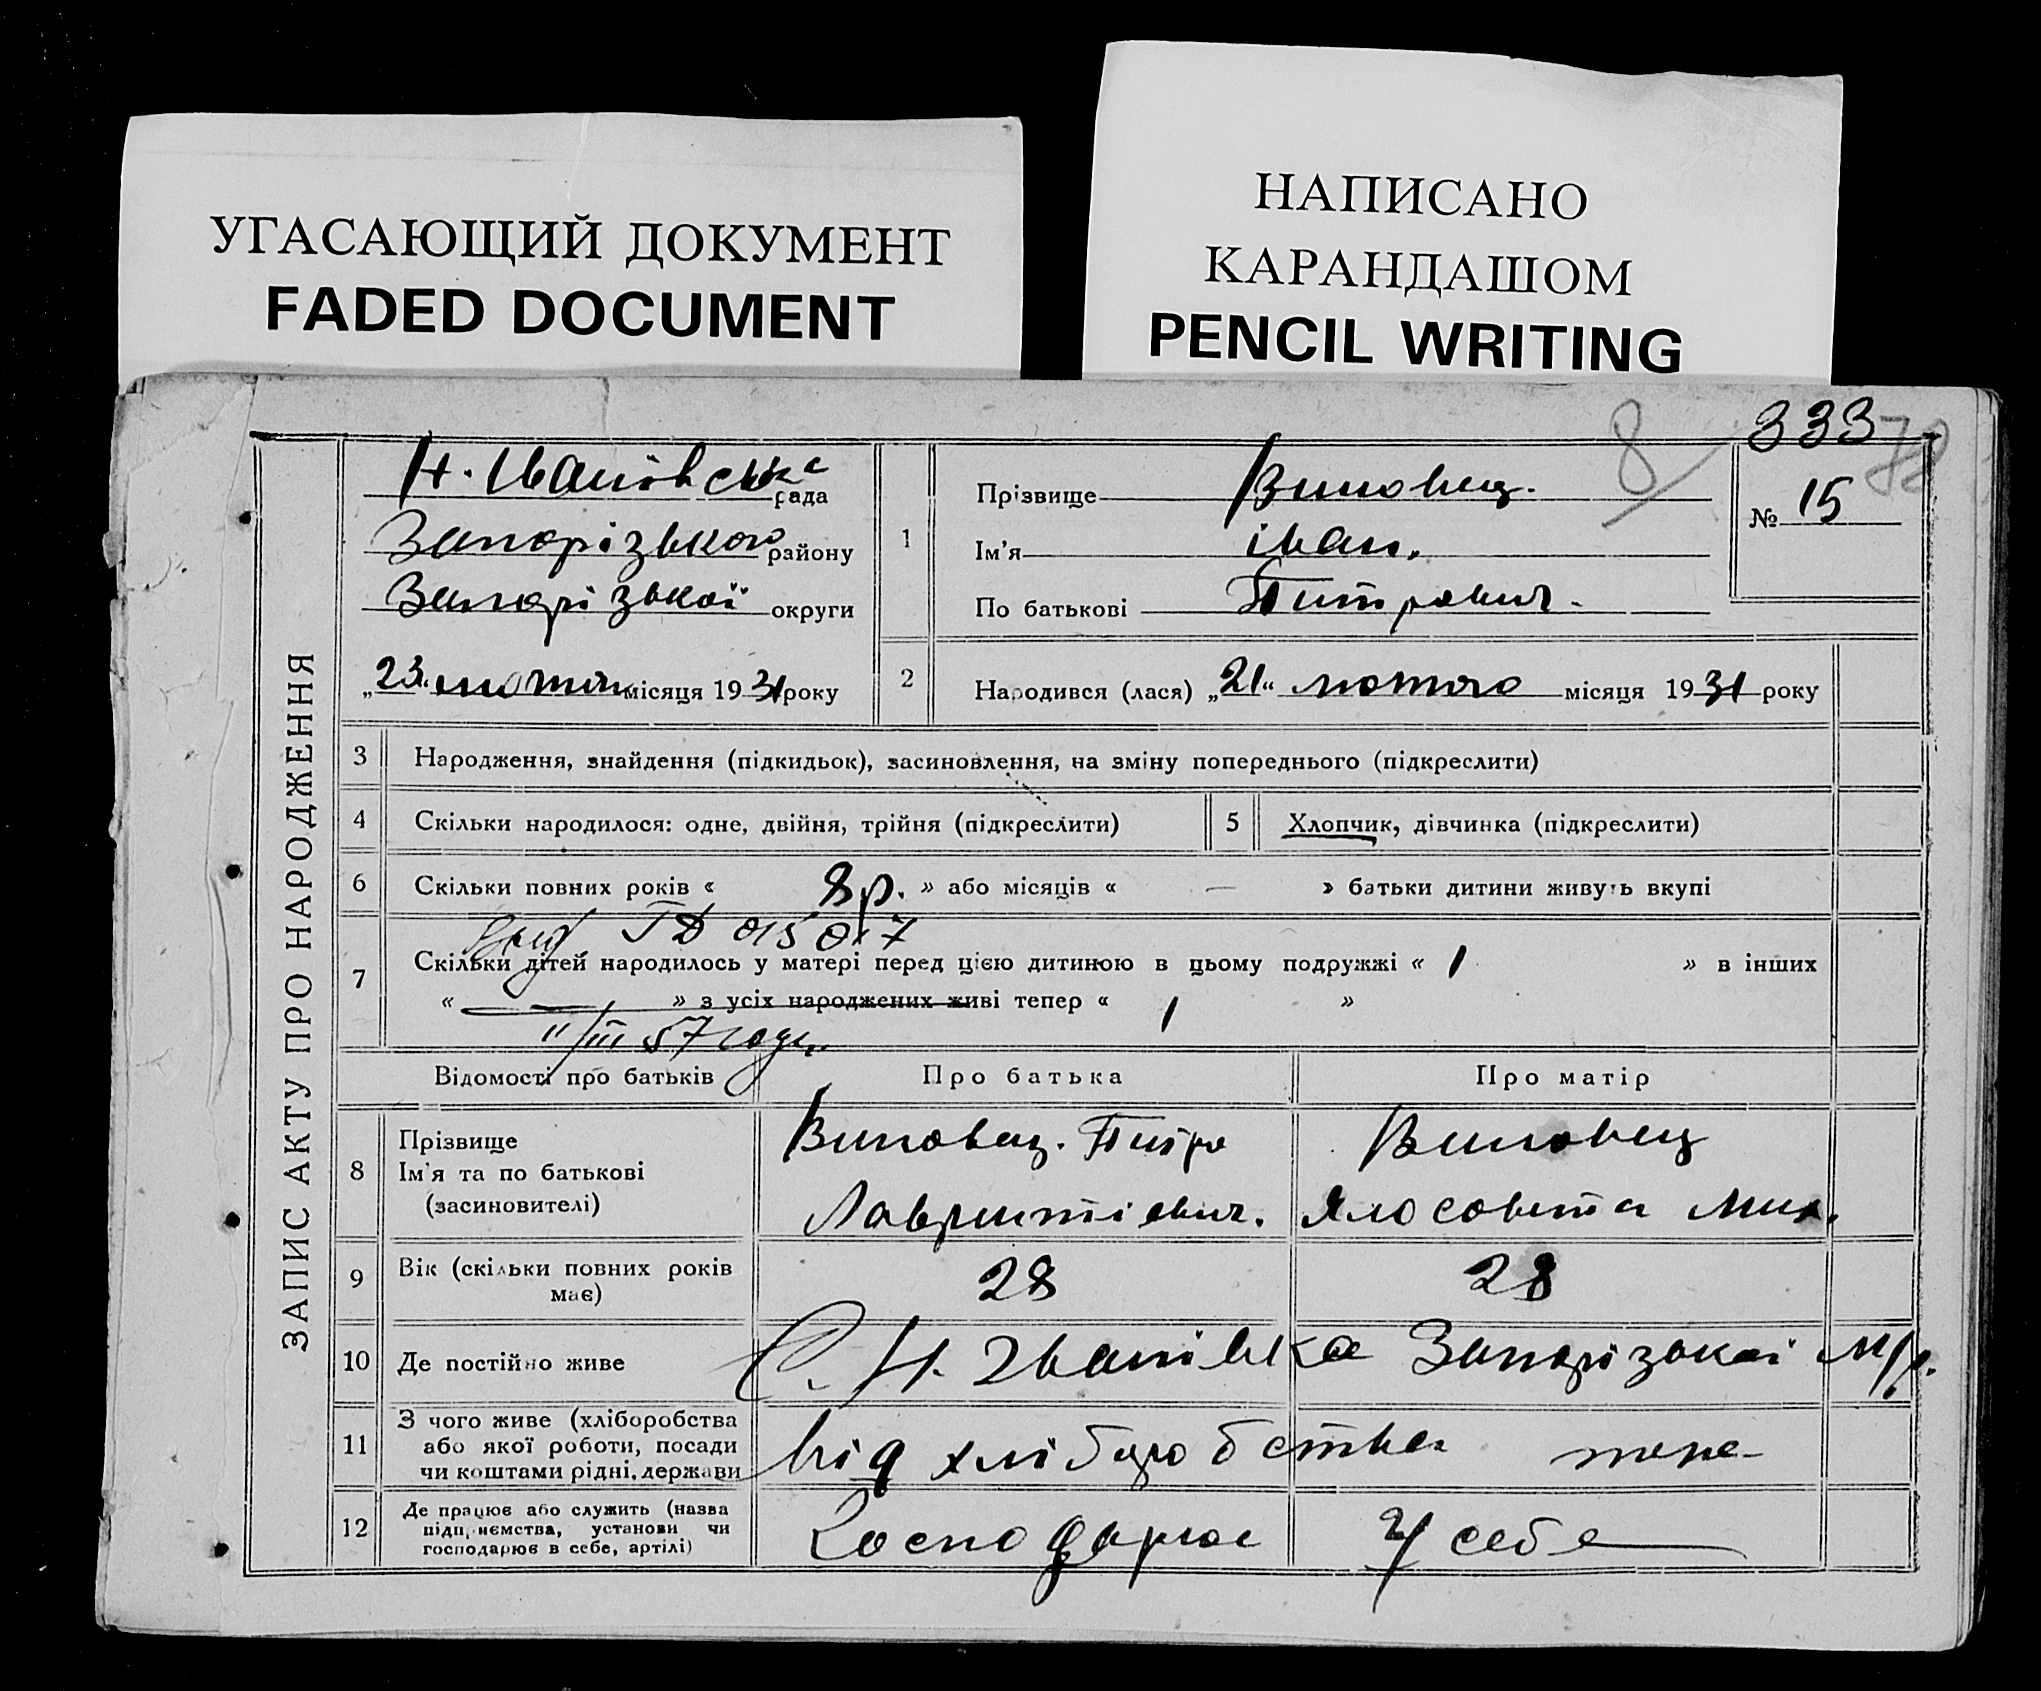 УГАСАЮЩИЙ ДОКУМЕНТ
FADED DOCUMENT
НАПИСАНО
КАРАНДАШОМ
PENCIL WRITING
8
333
78
ЗАПИС АКТУ ПРО НАРОДЖЕННЯ
Н. Іванівська рада
Запорізького району
Запорізької округи
„23“ лютого місяця 1931 року
1
Прізвище Виновец.
Ім’я іван.
По батькові Питрович.
№ 15
2
Народився (лася) „21“ лютого місяця 1931 року
3 Народження, знайдення (підкидьок), засиновлення, на зміну попереднього (підкреслити)
4 Скільки народилося: одне, двійня, трійня (підкреслити)
5 Хлопчик, дівчинка (підкреслити)
6 Скільки повних років « 8 р. » або місяців « — » батьки дитини живуть вкупі
015017
7 Скільки дітей народилось у матері перед цією дитиною в цьому подружжі « 1 » в інших
« — » з усіх народжених живі тепер « 1 »
11/III 57 года
Відомості про батьків
Про батька
Про матір
8 Прізвище
Ім’я та по батькові
(засиновителі)
Виновец. Питро
Лавринтієвич.
Виновец
Ялосовита Мих.
9 Вік (скільки повних років
має)
28
28
10 Де постійно живе
С. Н. Іванівка Запорізької М/р.
11 З чого живе (хліборобства
або якої роботи, посади
чи коштами рідні, держави
від хліборобства
12 Де працює або служить (назва
підприємства, установи чи
господарює в себе, артілі)
Господарює
У себе